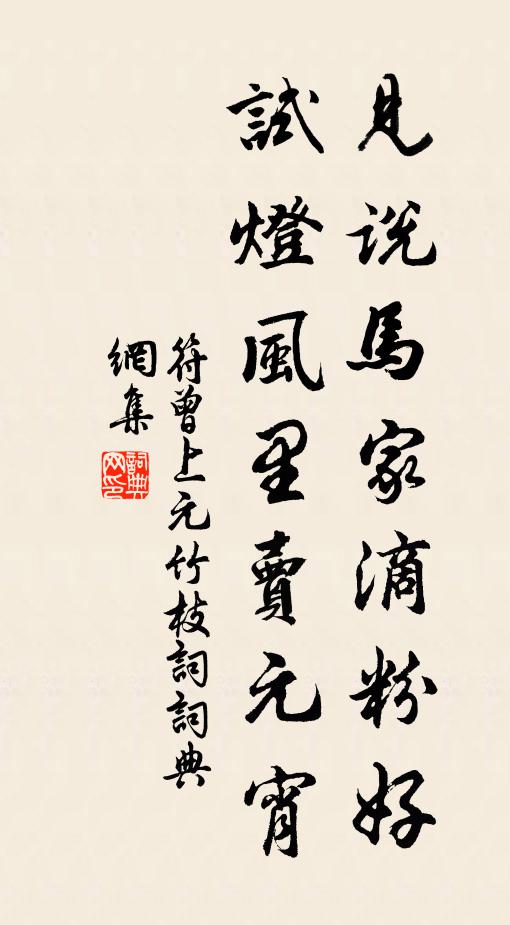 見説馬家滴粉好
試燈風里賣元宵
符曾上元竹枝詞詞典
網集
詞典
网印